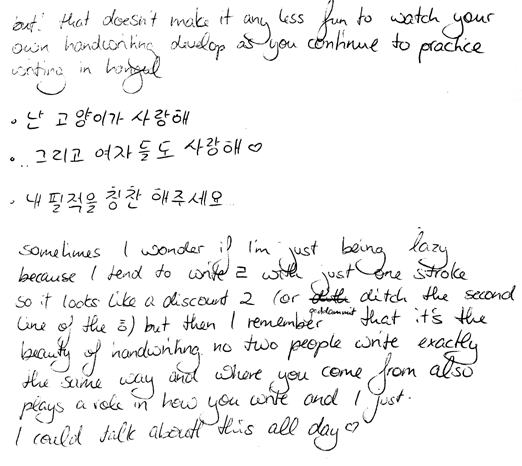 but! that doesn't make it any less fun to watch your
own handwriting develop as you continue to practice
writing in hangul
• 난 고양이가 사랑해
• 그리고 여자들도 사랑해♡
• 내 필적을 칭찬 해주세요
sometimes I wonder if I'm just being lazy
because I tend to write ㄹ with just one stroke
so it looks like a discount 2 (or ditch the second
line of the ㅎ) but then I remember goddammit that it's the
beauty of handwriting no two people write exactly
the same way and where you come from also
plays a role in how you write and I just.
I could talk about this all day♡